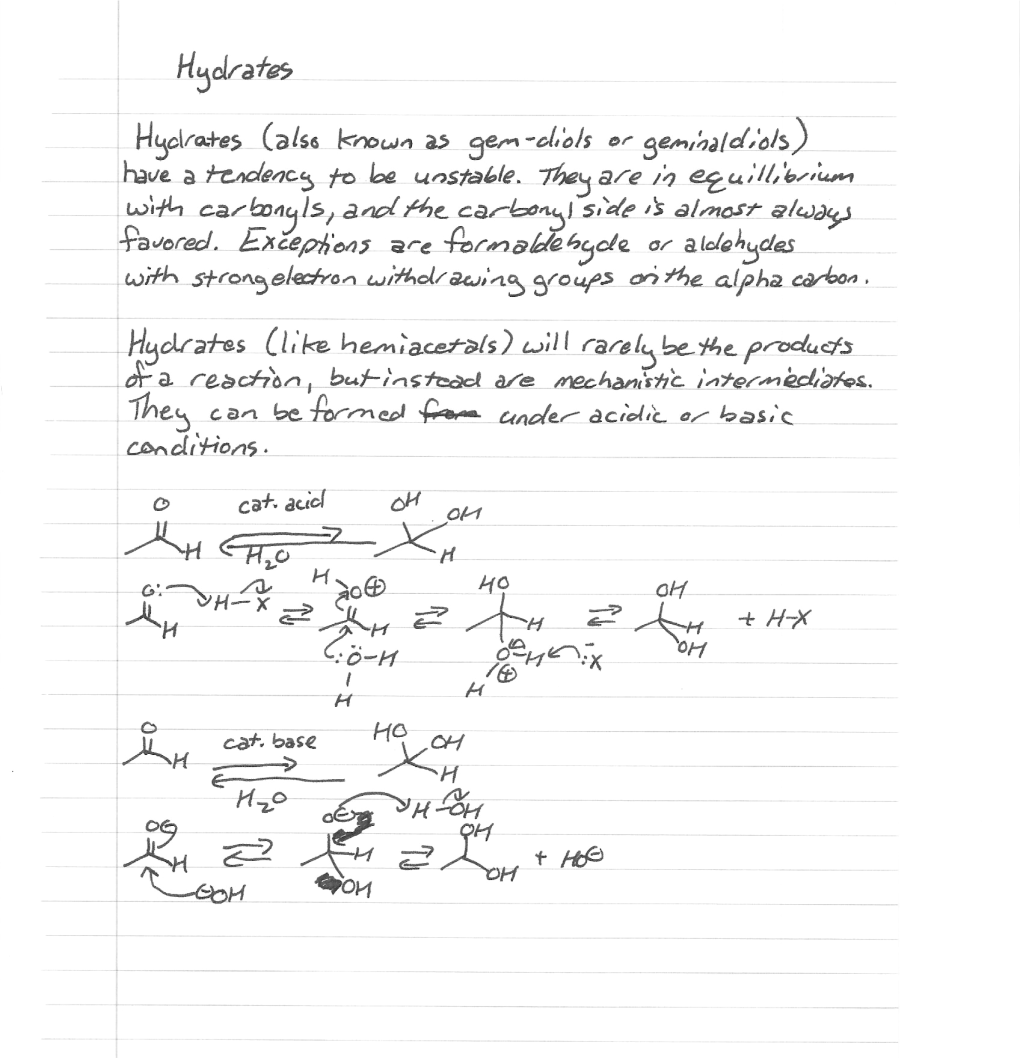 Hydrates
Hydrates (also known as gem-diols or geminaldiols)
have a tendency to be unstable. They are in equillibrium
with carbonyls, and the carbonyl side is almost always
favored. Exceptions are formaldehyde or aldehydes
with strong electron withdrawing groups on the alpha carbon.
Hydrates (like hemiacetals) will rarely be the products
of a reaction, but instead are mechanistic intermediates.
They can be formed from under acidic or basic
conditions.
O cat. acid OH OH
H H₂O H
O: H-X H O⊕ HO OH
H H H H + H-X
:Ö-H O-H :X⁻ OH
H H ⊕
O cat. base HO OH
H H
H₂O O⊖ H-OH
O H H OH OH + HO⊖
⊖OH OH